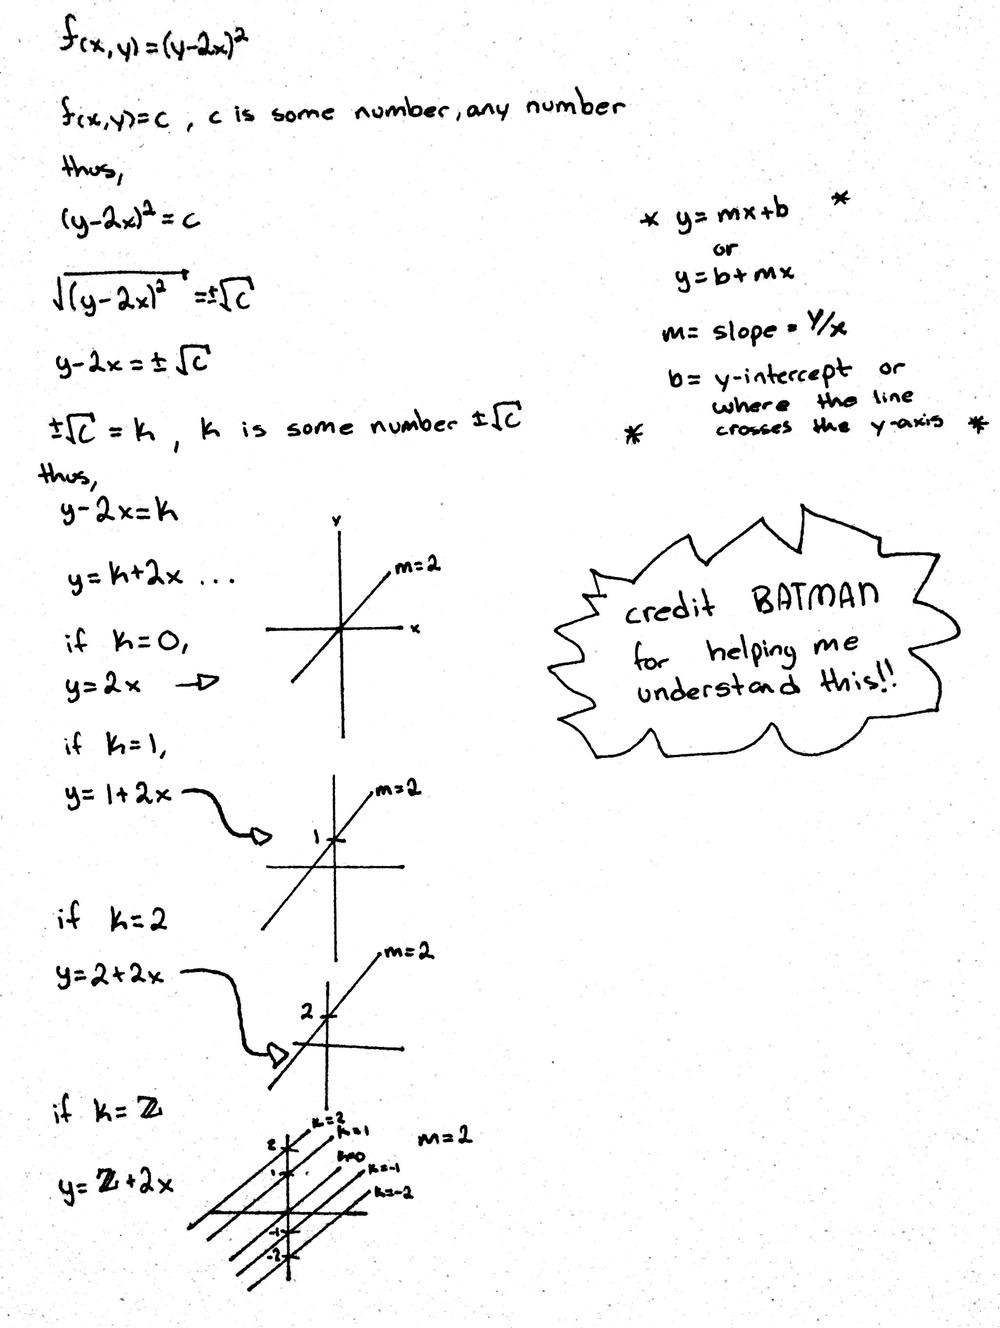 f(x,y)=(y-2x)²
f(x,y)=c , c is some number, any number
thus,
(y-2x)²=c
√(y-2x)² =±√c
y-2x=±√c
±√c = k , k is some number ±√c
thus,
y-2x=k
y=k+2x ...
if k=0,
y=2x
y
m=2
x
if k=1,
y=1+2x
m=2
1
if k=2
y=2+2x
m=2
2
if k=ℤ
y=ℤ+2x
k=2
k=1
k=0
k=-1
k=-2
2
1
-1
-2
m=2
* y=mx+b *
or
y=b+mx
m= slope = y/x
b= y-intercept or
where the line
* crosses the y-axis *
credit BATMAN
for helping me
understand this!!